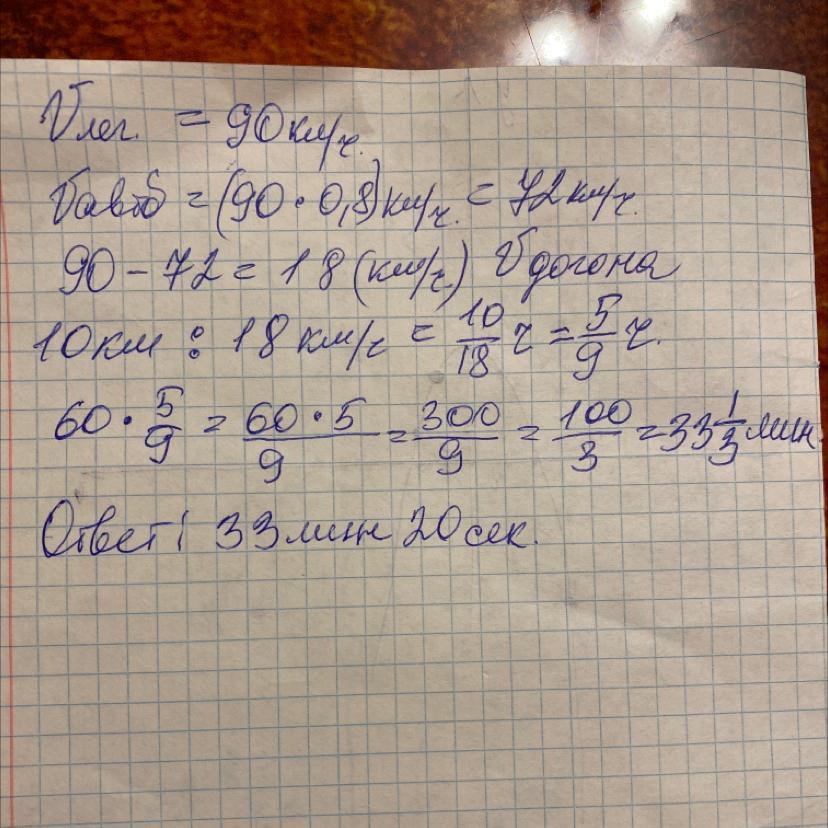 Vлег. = 90 км/ч.
Vавтб = (90 · 0,8) км/ч. = 72 км/ч.
90 - 72 = 18 (км/ч) Vдогона
10 км : 18 км/ч = 10/18 ч = 5/9 ч.
60 · 5/9 = 60 · 5/9 = 300/9 = 100/3 = 33 1/3 мин.
Ответ: 33 мин 20 сек.